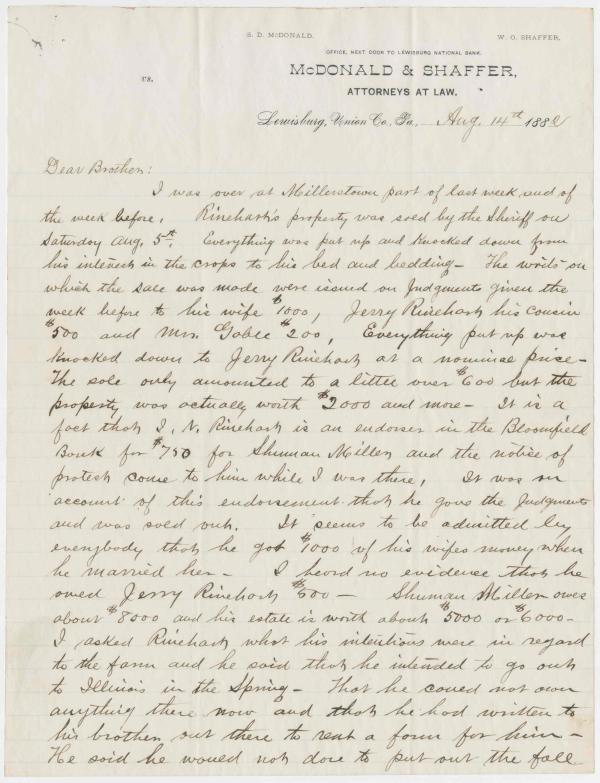 S. D. McDONALD. W. O. SHAFFER.
OFFICE, NEXT DOOR TO LEWISBURG NATIONAL BANK.
McDONALD & SHAFFER,
vs. ATTORNEYS AT LAW.
Lewisburg, Union Co., Pa., Aug. 14th 1882
Dear Brother:
I was over at Millerstown part of last week and of
the week before. Rinehart's property was sold by the Sheriff on
Saturday Aug. 5th. Everything was put up and knocked down from
his interest in the crops to his bed and bedding - The writs on
which the sale was made were issued on Judgments given the
week before to his wife $1000, Jerry Rinehart his cousin
$500 and Mrs. $200, Everything put up was
knocked down to Jerry Rinehart at a nominal price -
The sale only amounted to a little over $600 but the
property was actually worth $2000 and more - It is a
fact that I. N. Rinehart is an endorser in the Bloomfield
Bank for $750 for Shuman Miller and the notice of
protest came to him while I was there. It was on
account of this endorsement that he gave the Judgments
and was sold out. It seems to be admitted by
everybody that he got $1000 of his wifes money when
he married her - I heard no evidence that he
owed Jerry Rinehart $500 - Shuman Miller owes
about $8000 and his estate is worth about $5000 or $6000 -
I asked Rinehart what his intentions were in regard
to the farm and he said that he intended to go out
to Illinois in the Spring - That he could not own
anything there now and that he had written to
his brother out there to rent a farm for him -
He said he would not dare to put out the fall